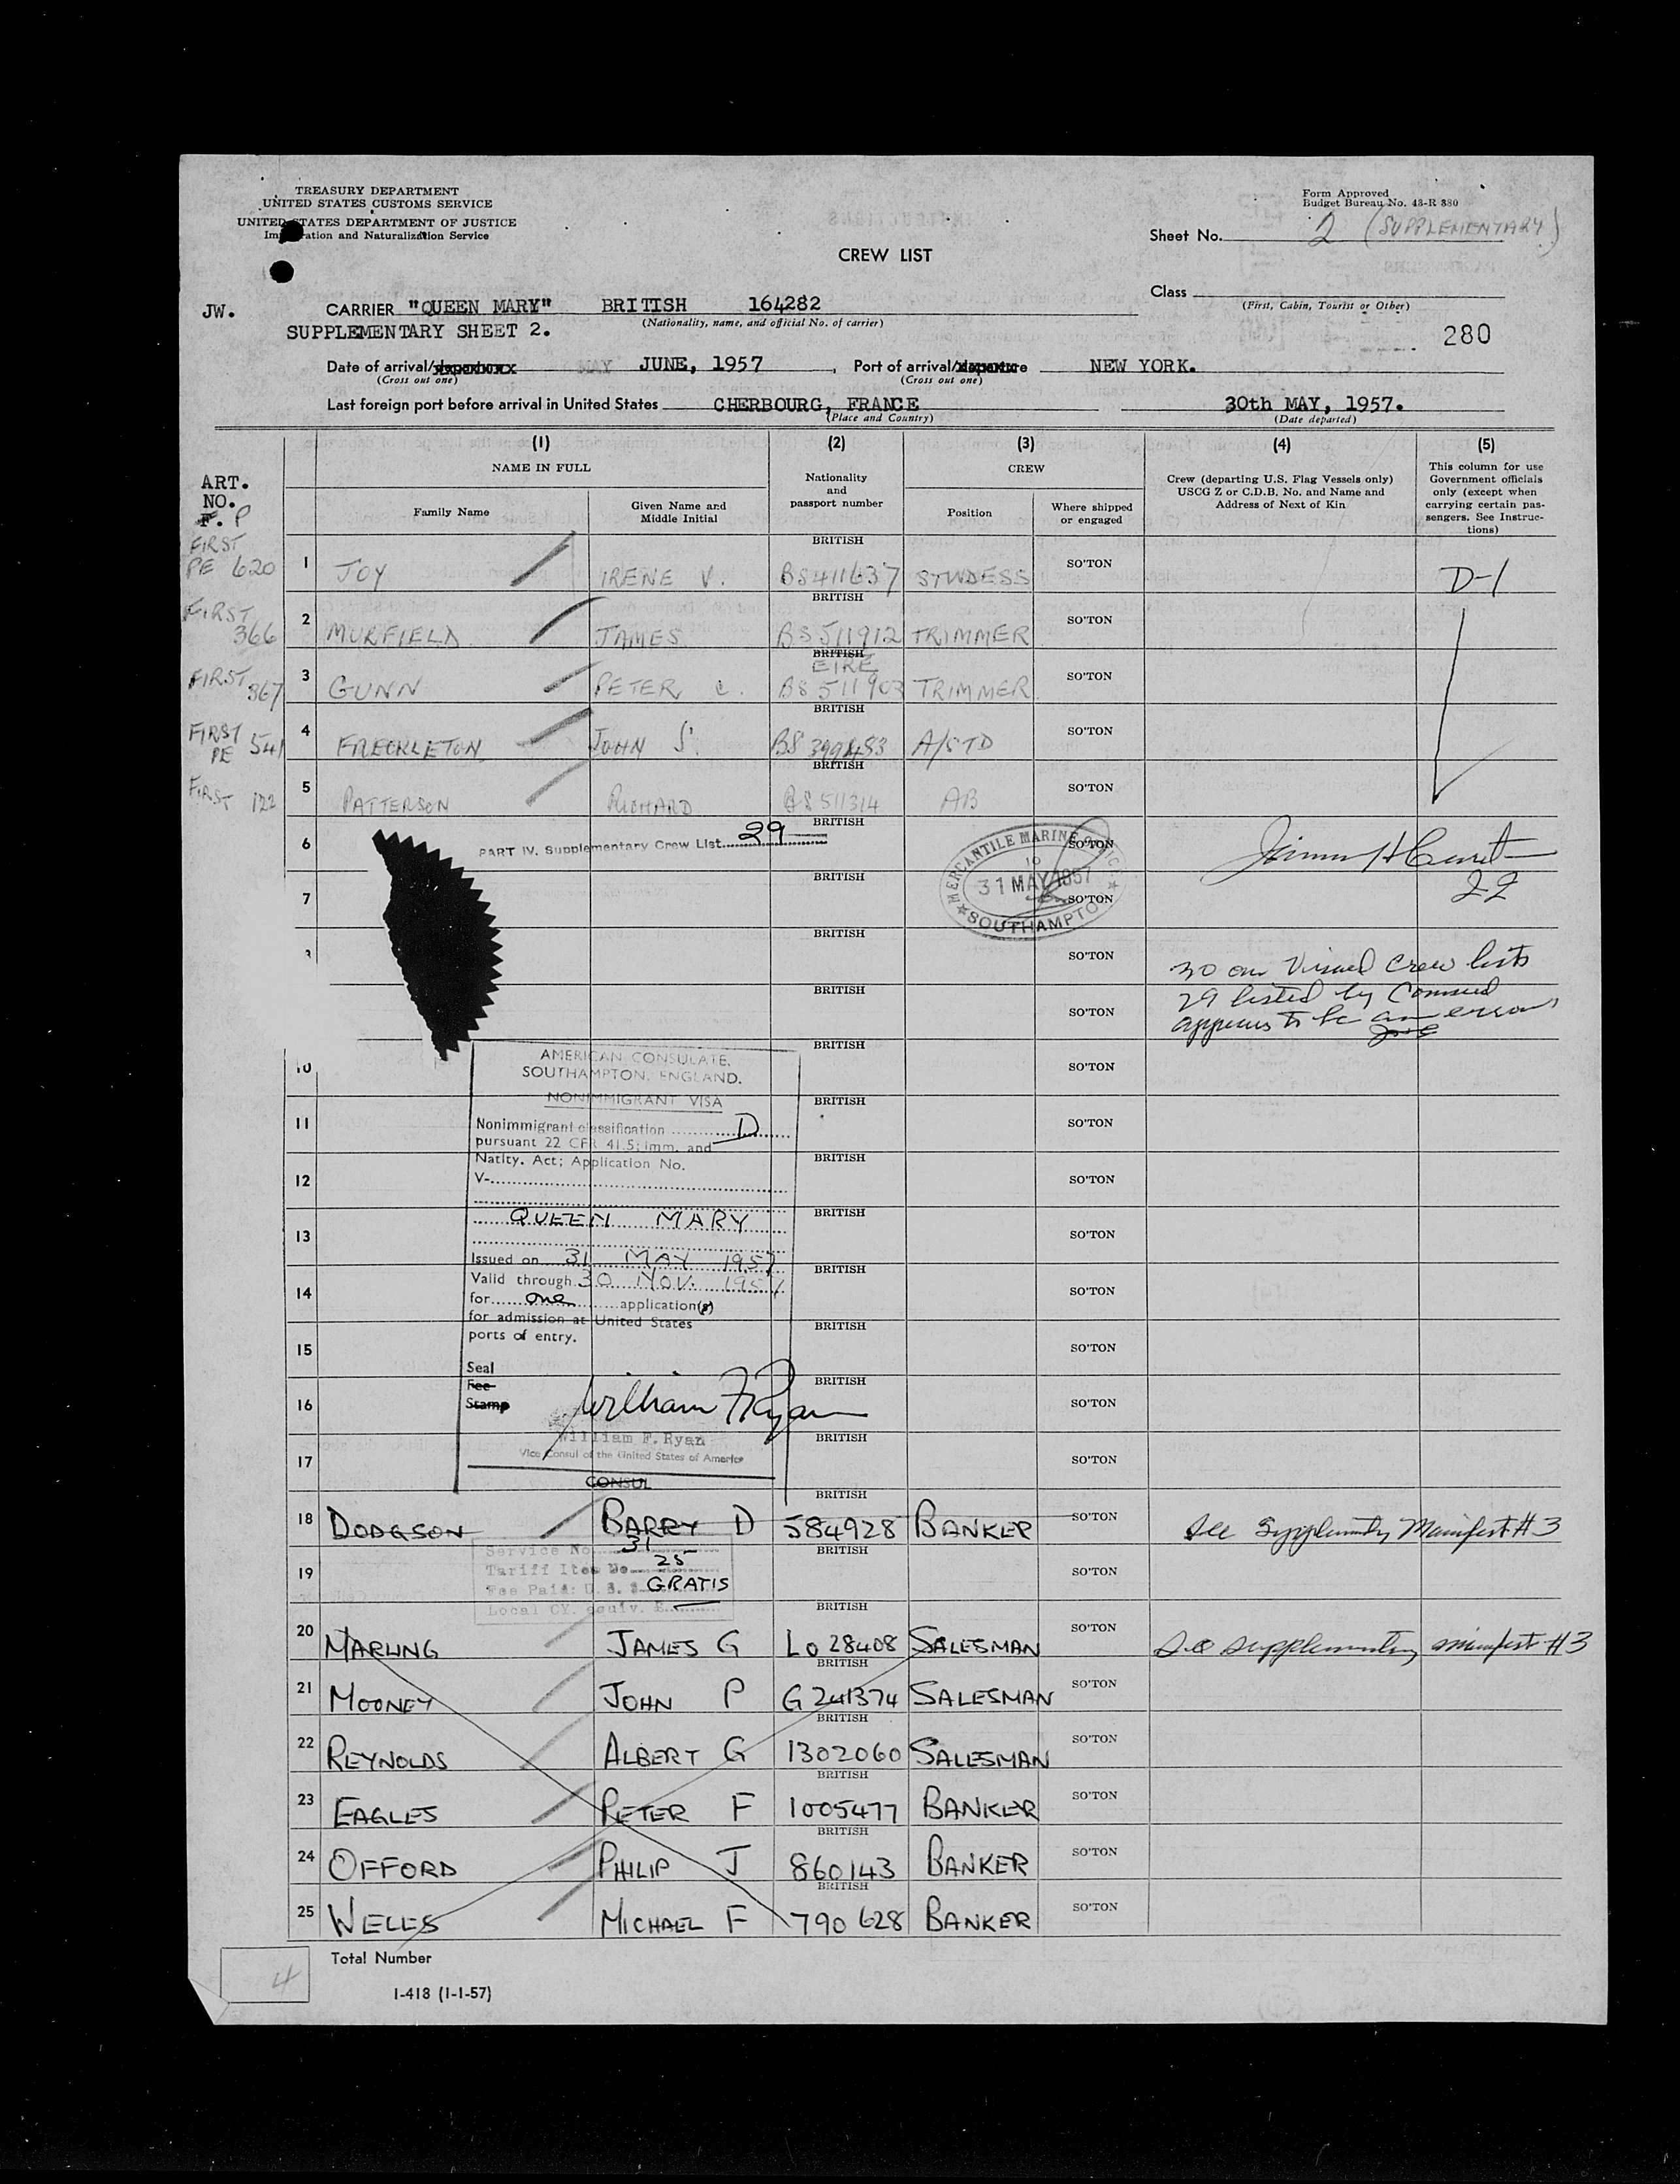 TREASURY DEPARTMENT
UNITED STATES CUSTOMS SERVICE
UNITED STATES DEPARTMENT OF JUSTICE
ration and Naturalization Service
Form Approved
Budget Bureau No. 43-R 380
Sheet No. 2 (SUPPLEMENTARY)
CREW LIST
Class
(First, Cabin, Tourist or Other)
JW. CARRIER "QUEEN MARY" BRITISH 164282
(Nationality, name, and official No. of carrier)
SUPPLEMENTARY SHEET 2.
280
Date of arrival/ MAY JUNE, 1957, Port of arrival/departure NEW YORK.
(Cross out one) (Cross out one)
Last foreign port before arrival in United States CHERBOURG, FRANCE 30th MAY, 1957.
(Place and Country) (Date departed)
(1) (2) (3) (4) (5)
NAME IN FULL
Family Name
Given Name and Middle Initial
Nationality and passport number
CREW
Position
Where shipped or engaged
Crew (departing U.S. Flag Vessels only) USCG Z or C.D.B. No. and Name and Address of Next of Kin
This column for use Government officials only (except when carrying certain passengers. See Instructions)
ART.
NO.
F. P
BRITISH
FIRST PE 620 1 JOY IRENE V. BS411637 STWDESS SO'TON D-1
BRITISH
FIRST 366 2 MURFIELD JAMES BS511912 TRIMMER SO'TON
BRITISH
EIRE
FIRST 367 3 GUNN PETER C. BS511903 TRIMMER SO'TON
BRITISH
FIRST PE 541 4 FRECKLETON JOHN S. BS 399483 A/STD SO'TON
BRITISH
FIRST 122 5 PATTERSON RICHARD BS511314 AB SO'TON
BRITISH
6 PART IV. Supplementary Crew List 29 SO'TON
MERCANTILE MARINE OFFICE
10
31 MAY 1957
SOUTHAMPTON
BRITISH
7 SO'TON 22
BRITISH
SO'TON
30 on Visaed Crew lists
29 listed by Consul
appears to be an error
BRITISH
SO'TON
BRITISH
10 SO'TON
AMERICAN CONSULATE,
SOUTHAMPTON, ENGLAND.
NONIMMIGRANT VISA
BRITISH
11 SO'TON
Nonimmigrant classification D
pursuant 22 CFR 41.5; Imm. and
Natlty. Act; Application No.
V-
BRITISH
12 SO'TON
QUEEN MARY
BRITISH
13 SO'TON
Issued on 31 MAY 1957
BRITISH
Valid through 30 NOV. 1957
14 SO'TON
for one application(s)
for admission at United States
ports of entry.
BRITISH
15 SO'TON
Seal
Fee
Stamp
BRITISH
16 SO'TON
William F Ryan
William F. Ryan
Vice Consul of the United States of America
BRITISH
17 SO'TON
CONSUL
BRITISH
18 DODGSON BARRY D 584928 BANKER SO'TON See Supplementary Manifest #3
BRITISH
19 SO'TON
Service No. 31
Tariff Item No. 25
Fee Paid: U. S. $ GRATIS
Local CY. equiv. £
BRITISH
20 MARLING JAMES G Lo 28408 SALESMAN SO'TON See supplementary manifest #3
BRITISH
21 MOONEY JOHN P G 241374 SALESMAN SO'TON
BRITISH
22 REYNOLDS ALBERT G 1302060 SALESMAN SO'TON
BRITISH
23 EAGLES PETER F 1005477 BANKER SO'TON
BRITISH
24 OFFORD PHILIP J 860143 BANKER SO'TON
BRITISH
25 WELLS MICHAEL F 790628 BANKER SO'TON
Total Number
4
I-418 (1-1-57)